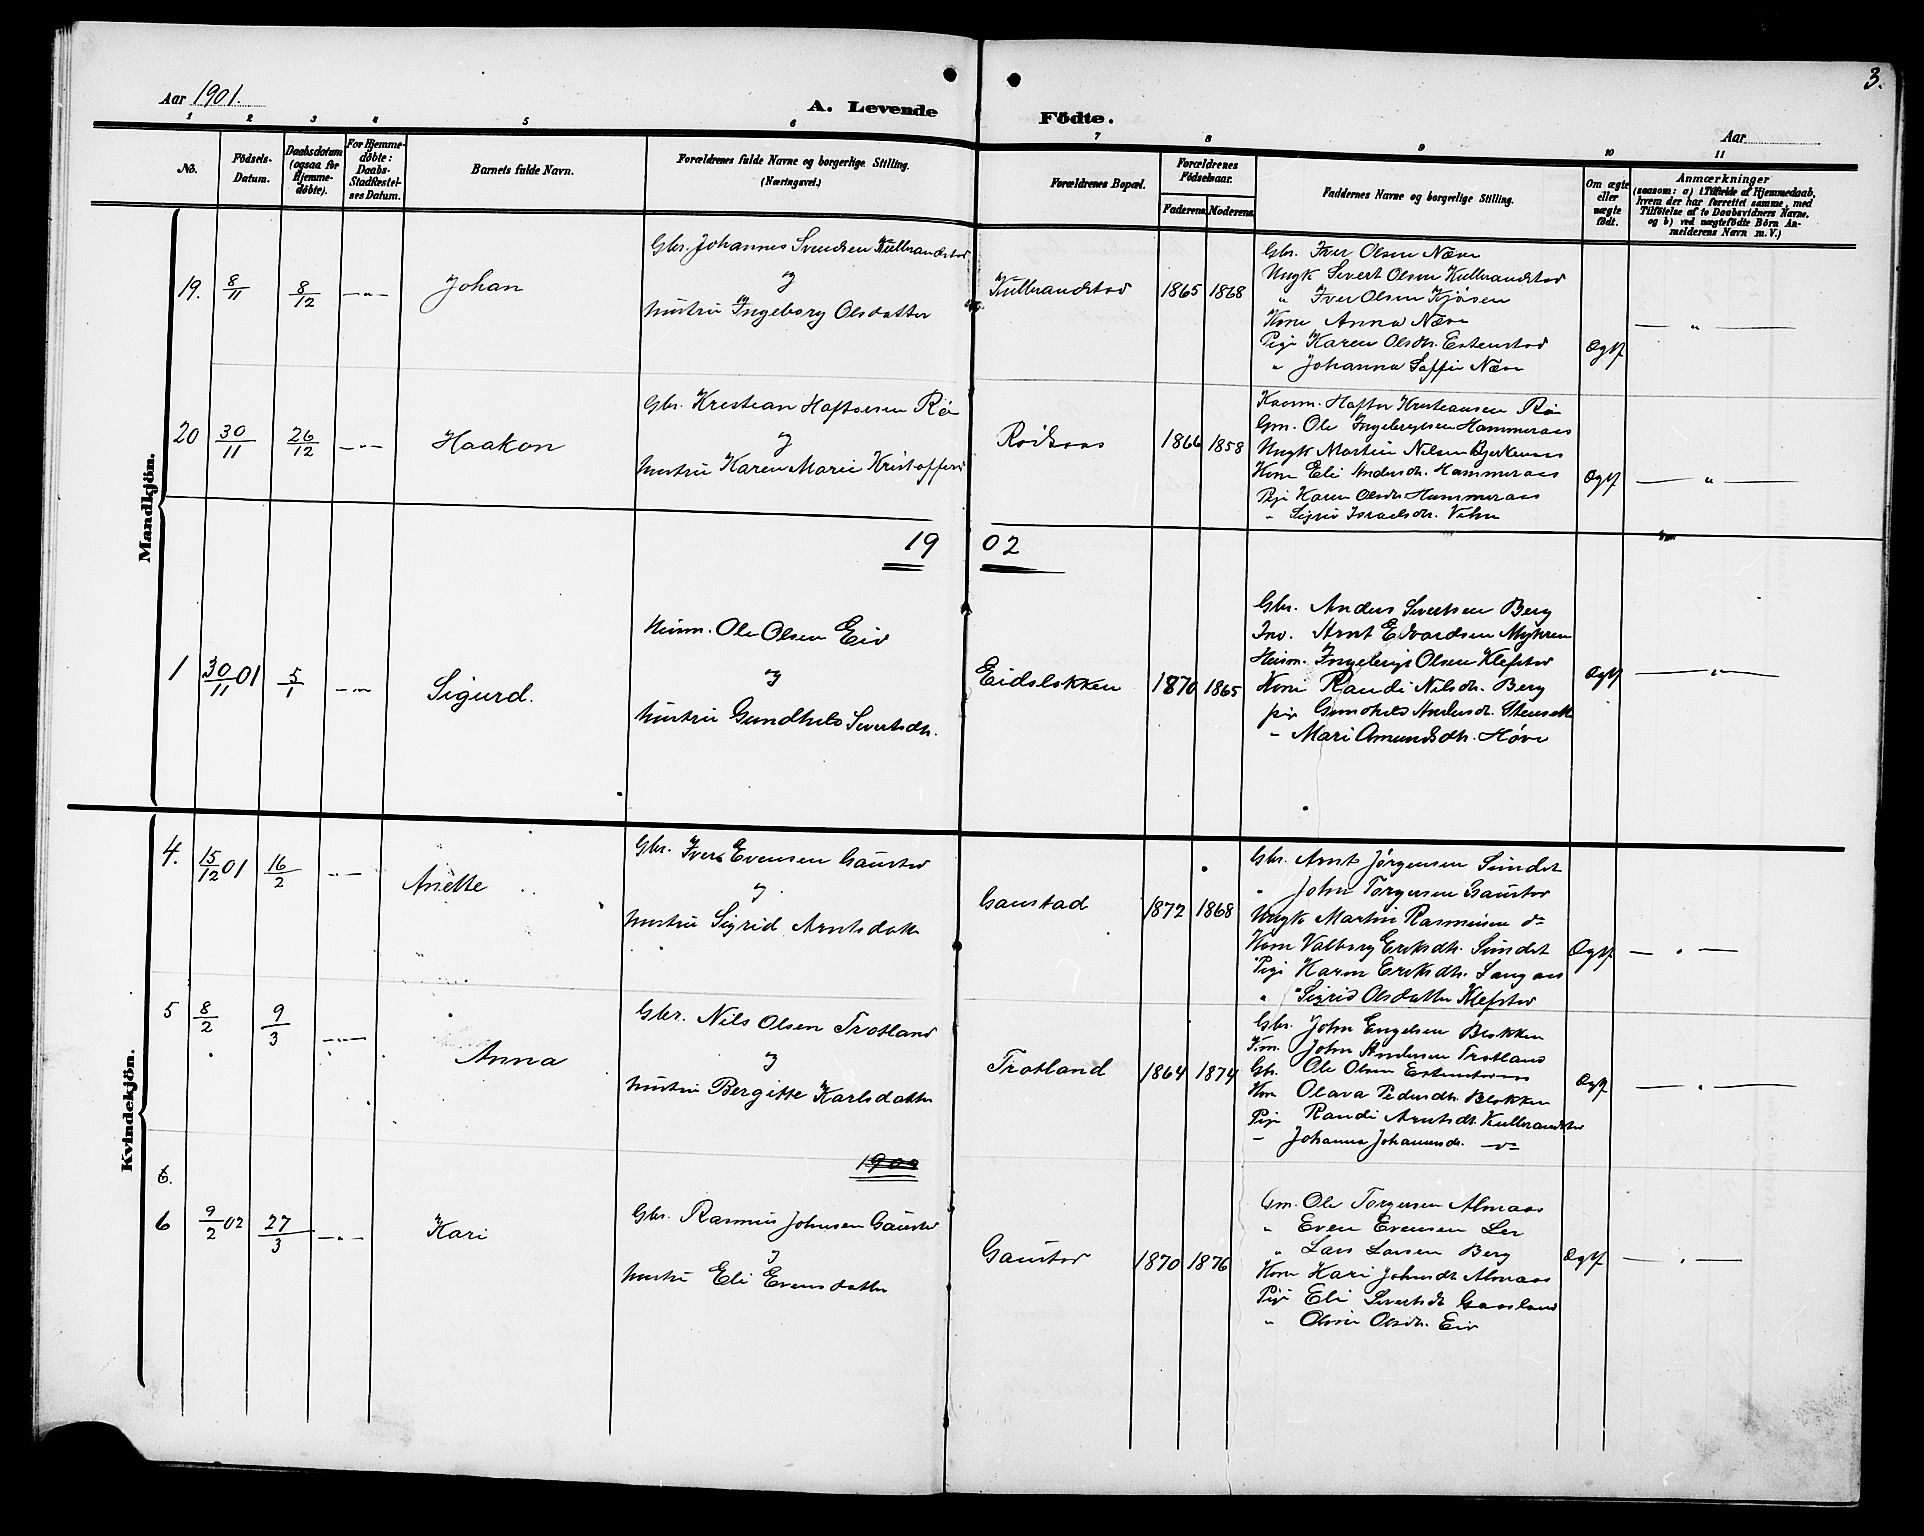 3.
Aar 1901.
A. Levende Födte.
Aar
1 2 3 4 5 6 7 8 9 10 11
No.
Födsels-Datum.
Daabsdatum (ogsaa for Hjemme-döbte).
For Hjemme-döbte: Daabs-Stadfæstel-ses Datum.
Barnets fulde Navn.
Forældrenes fulde Navne og borgerlige Stilling.
(Næringsvei.)
Forældrenes Bopæl.
Forældrenes Födselsaar.
Faderens. Moderens.
Faddernes Navne og borgerlige Stilling.
Om ægte eller uægte födt.
Anmærkninger
(saasom: a) i Tilfælde af Hjemmedaab,
hvem der har forrettet samme, med
Tilföielse af to Daabsvidners Navne,
og b) ved uægtefödte Börn An-
melderens Navn m. V.)
Mandkjön.
19. 8/11 8/12 — " — Johan
Gbr. Johannes Svendsen Kulbrandstad
og
Hustru Ingeborg Olsdatter
Kulbrandstad 1865 1868
Gbr. Iver Olsen Næve
Ungk Sivert Olsen Kulbrandstad
" Iver Olsen Kjösen
Kone Anna Næve
Pige Karen Olsdtr. Estenstad
" Johanna Næve
Ægtf — " —
20 30/11 26/12 — " — Haakon
Gbr. Kristian Haftorsen Rö
og
Hustru Karen Marie Kristoffersd
1866 1858
Haftor Kristiansen Rö
Gm. Ole Ingebrigtsen Hammeraas
Ungk Martin Nilsen Bjerkenaas
Kone Eli Andersdtr. Hammeraas
Pige Karen Olsdtr Hammeraas
" Sigrid Israelsdtr.
Ægtf — " —
1902
1 30/11 01 5/1 — " — Sigurd.
Husm. Ole Olsen Eid
og
Hustru Gundhild Sivertsdtr.
Eidslökken 1870 1865
Gbr. Anders Sivertsen Berg
Ind. Arnt Edvardsen Myhren
Husm. Ingebrigt Olsen Klefstad
Kone Randi Nilsdtr. Berg
pige Gundhild Andersdtr.
" Mari Amundsdtr. Høve
Ægtf — " —
Kvindekjön.
4. 15/12 01 16/2 — " — Anette
Gbr. Iver Evensen Gaustad
og
Hustru Sigrid Arntsdatter
Gaustad 1872 1868
Gbr. Arnt Jørgensen Sundet
" John Torgersen Gaustad
Ungk Martin Rasmusen do
Kone Valborg Eriksdtr. Sundet
Pige Karen Eriksdtr. Langaas
" Sigrid Olsdatter Klefstad
Ægtf — " —
5 8/2 9/3 — " — Anna
Gbr. Nils Olsen Trotland
og
Hustru Bergitte Karlsdatter
Trotland 1864 1874
Gbr. John Engelsen Blokken
John Andersen Trotland
Gbr. Ole Olsen
Kone Olava Pedersdtr. Blokken
Pige Randi Arntsdtr Kulbrandstad
" Johanna Johannesdtr. do
Ægtf — " —
6.
1902
6 9/2 02 27/3 — " — Kari
Gbr. Rasmus Johnsen Gaustad
og
Hustru Eli Evensdatter
Gaustad 1870 1876
Gm. Ole Torgersen Almaas
" Even Evensen Ler
" Lars Larsen Berg
Kone Kari Johnsdtr Almaas
Pige Eli Sivertsdtr Gaasland
" Olsdtr. Eid
Ægtf — " —